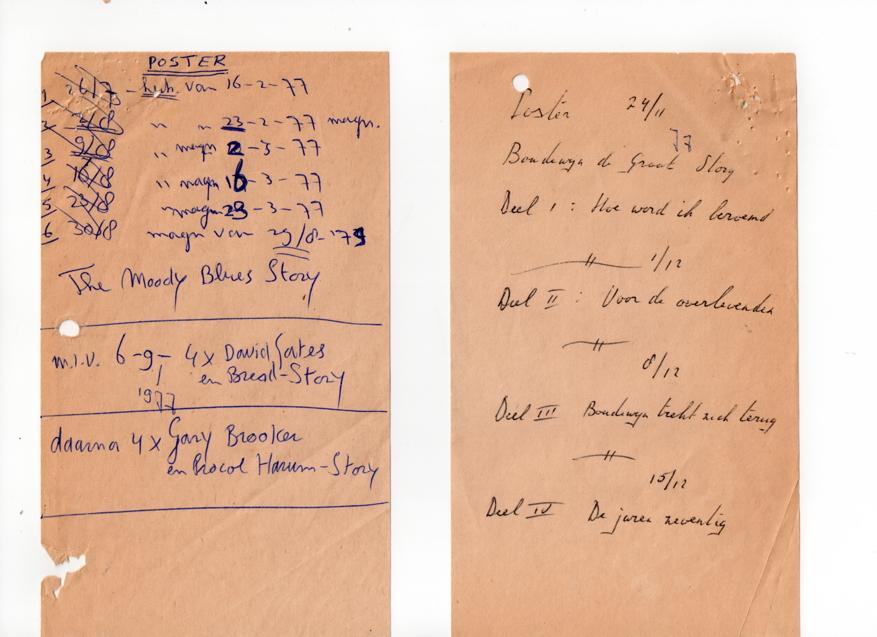 POSTER
1 26/7 - huh. van 16-2-77
2 2/8 " " 23-2-77 magn.
3 9/8 " magn 2-3-77
4 16/8 " magn 16-3-77
5 23/8 " magn 23-3-77
6 30/8 magn van 29/8-'79
The Moody Blues Story
m.i.v. 6-9- 4x David Gates
en Bread-Story
1977
daarna 4x Gary Brooker
en Procol Harum-Story
Poster 24/11
77
Boudewyn de Groot Story
Deel I : Hoe word ik beroemd
—"— 1/12
Deel II : Voor de overlevenden
—"—
8/12
Deel III Boudewyn trekt zich terug
—"—
15/12
Deel IV De jaren zeventig